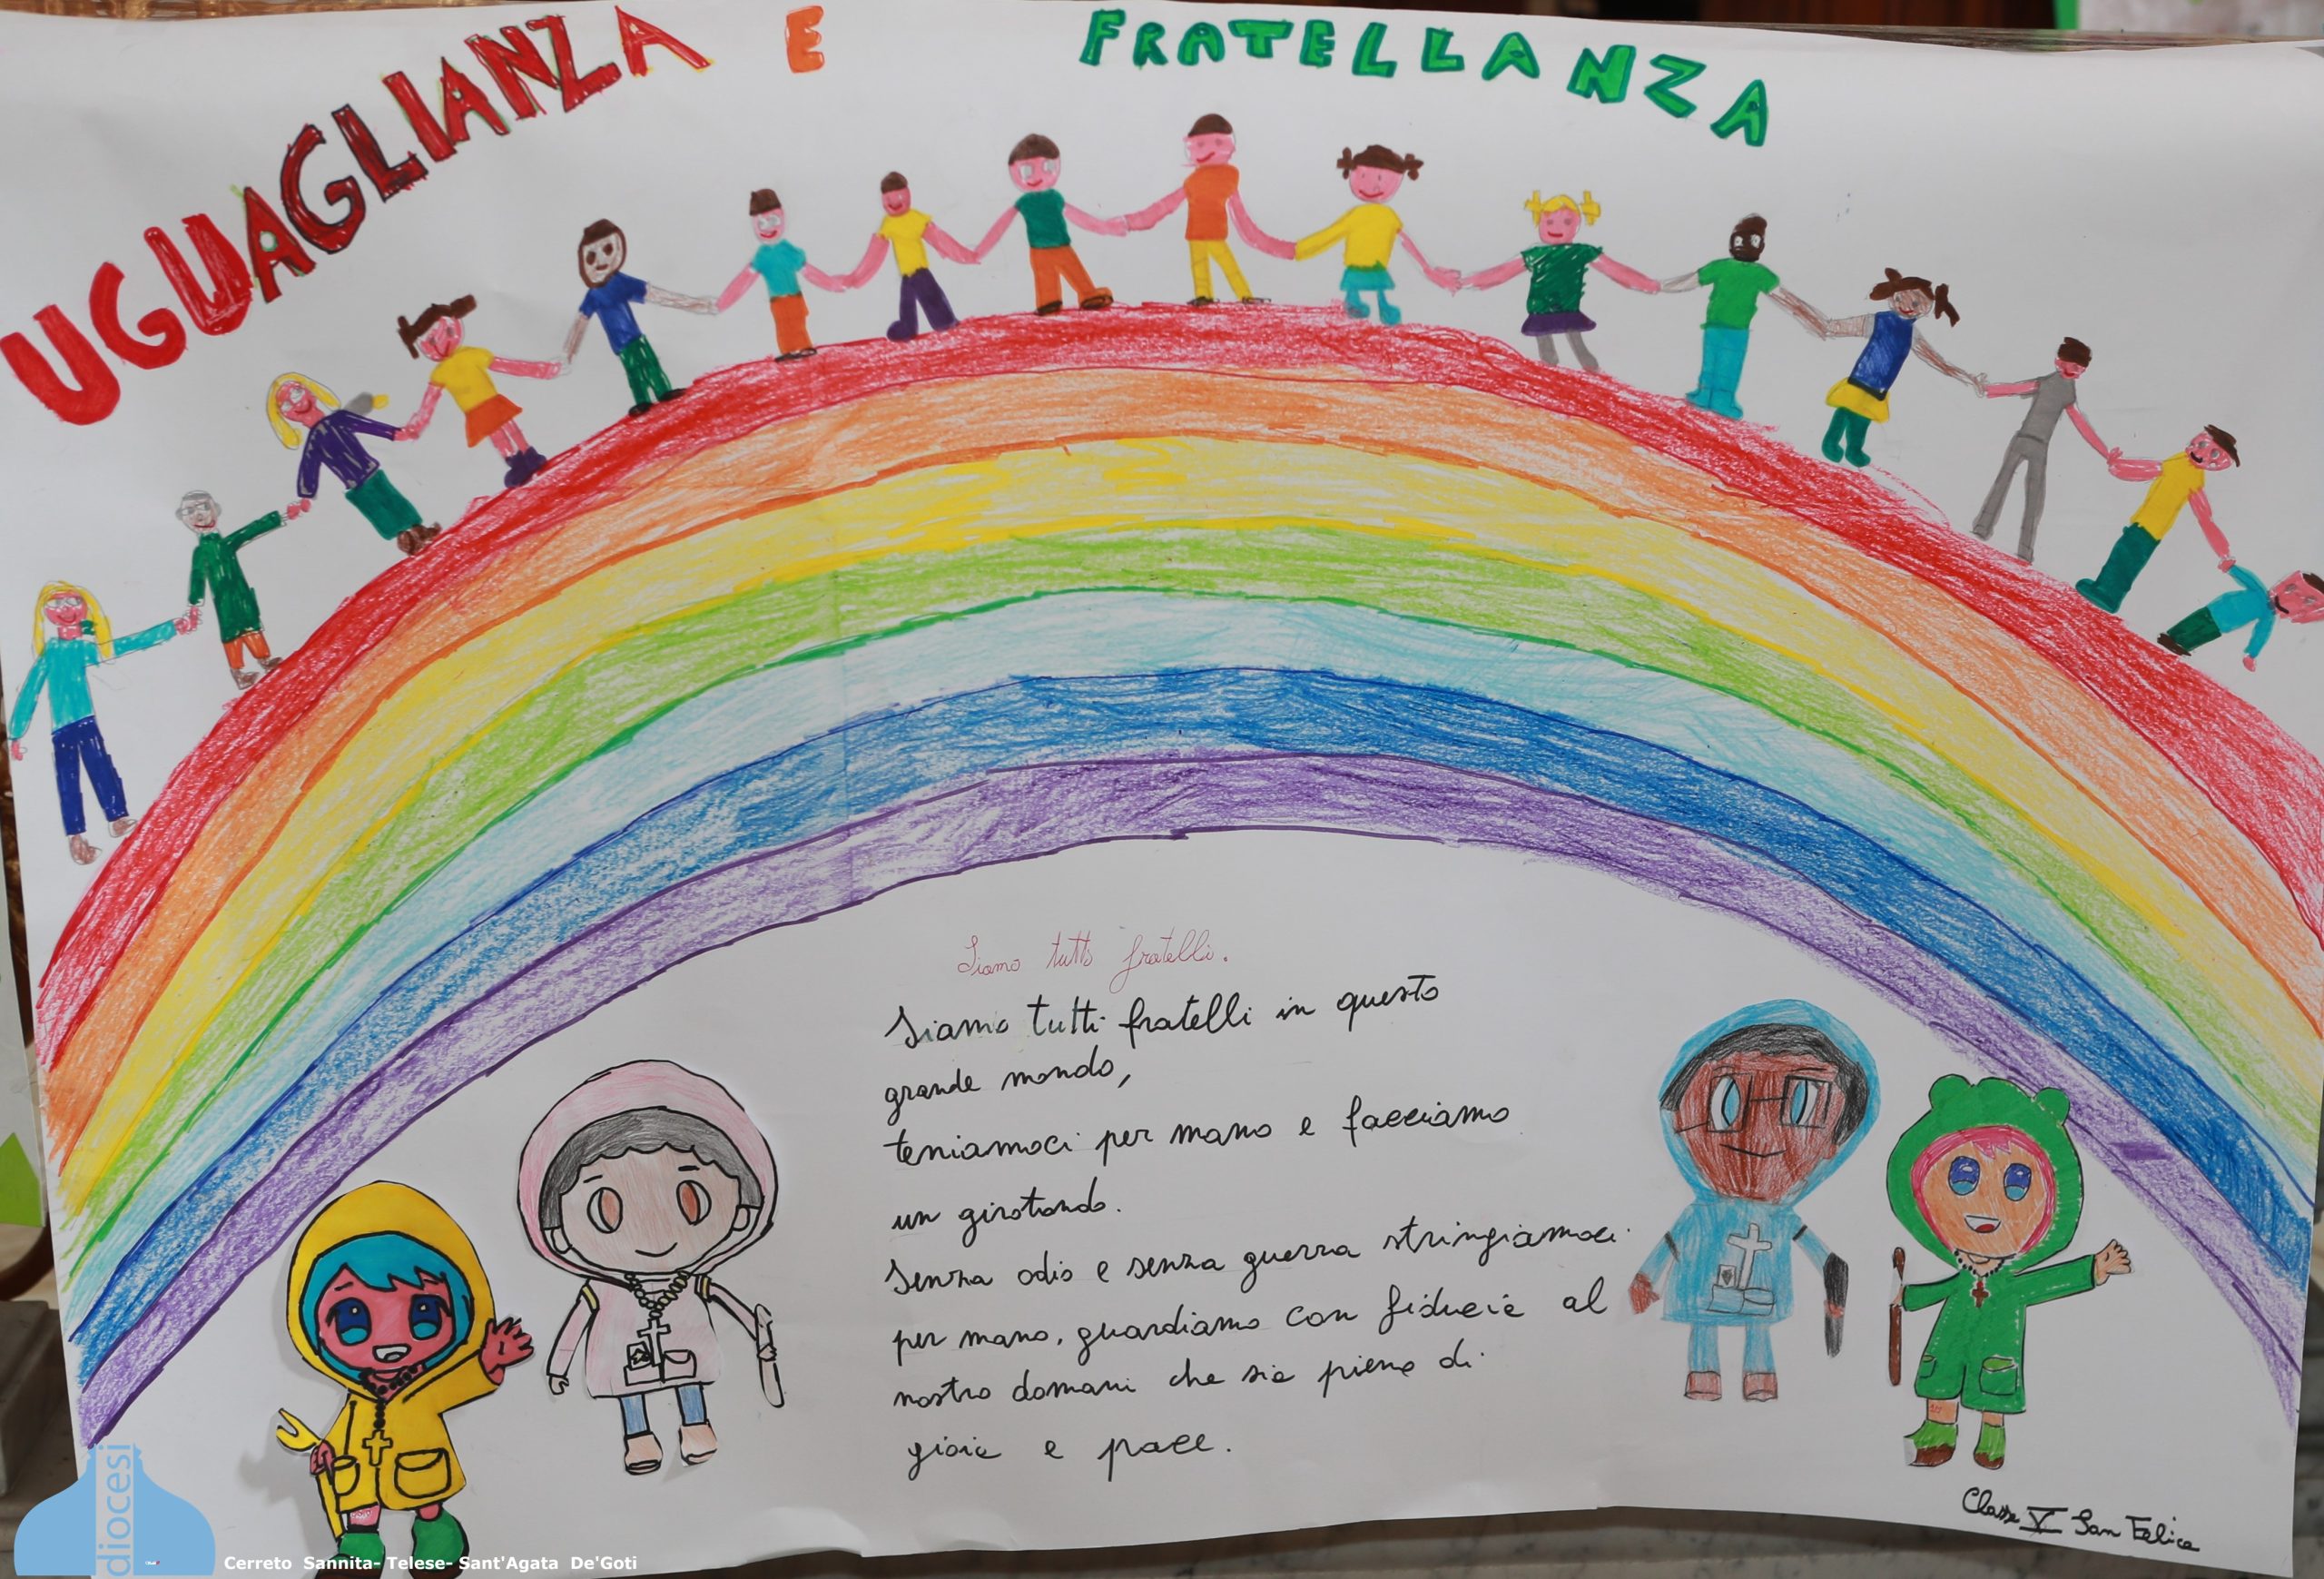 UGUAGLIANZA E FRATELLANZA
Siamo tutti fratelli.
Siamo tutti fratelli in questo
grande mondo,
teniamoci per mano e facciamo
un girotondo.
Senza odio e senza guerra stringiamoci
per mano, guardiamo con fiducia al
nostro domani che sia pieno di
gioia e pace.
Classe V San Felice
diocesi
Cerreto Sannita- Telese- Sant'Agata De'Goti